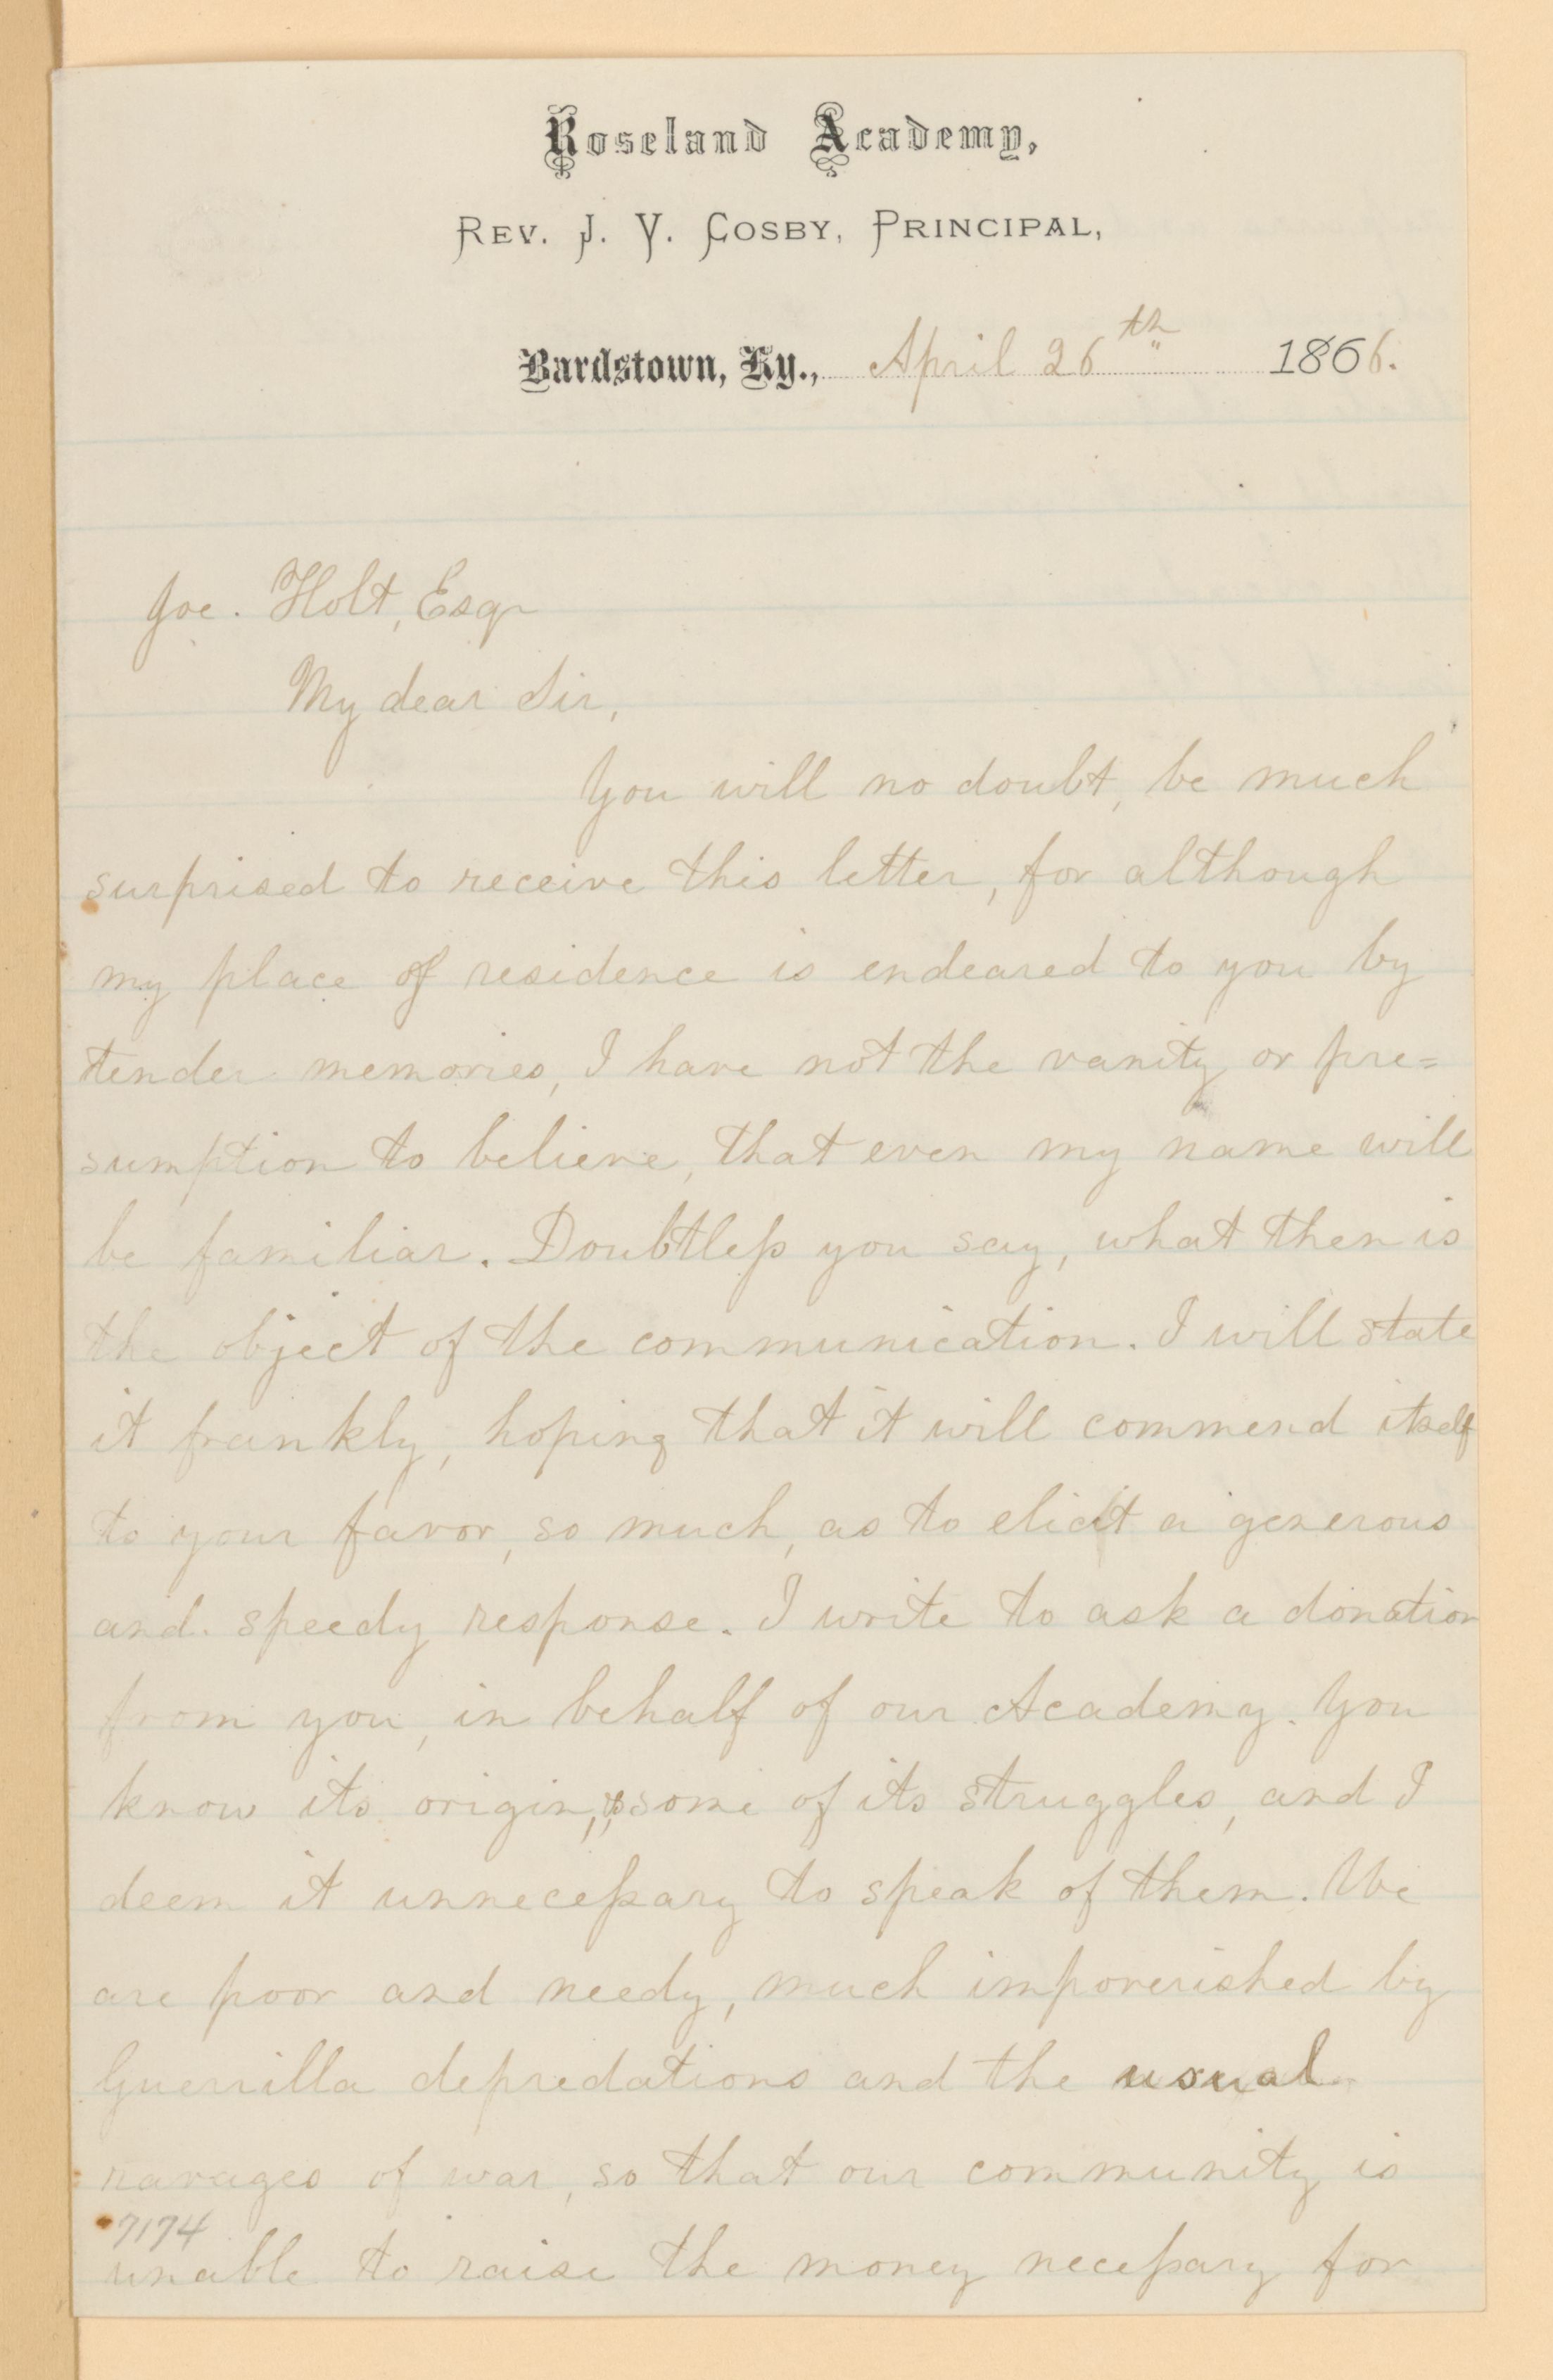 Roseland Academy,
Rev. J. V. Cosby, Principal,
Bardstown, Ky., April 26th 1866.
Joe. Holt, Esqr
My dear Sir,
You will no doubt, be much
surprised to receive this letter, for although
my place of residence is endeared to you by
tender memories, I have not the vanity or pre=
sumption to believe, that even my name will
be familiar. Doubtless you say, what then is
the object of the communication. I will state
it frankly, hoping that it will commend itself
to your favor, so much, as to elicit a generous
and speedy response. I write to ask a donation
from you, in behalf of our Academy. You
know its origin, & some of its struggles, and I
deem it unnecessary to speak of them. We
are poor and needy, much impoverished by
Guerrilla depredations and the usual
ravages of war, so that our community is
7174
unable to raise the money necessary for